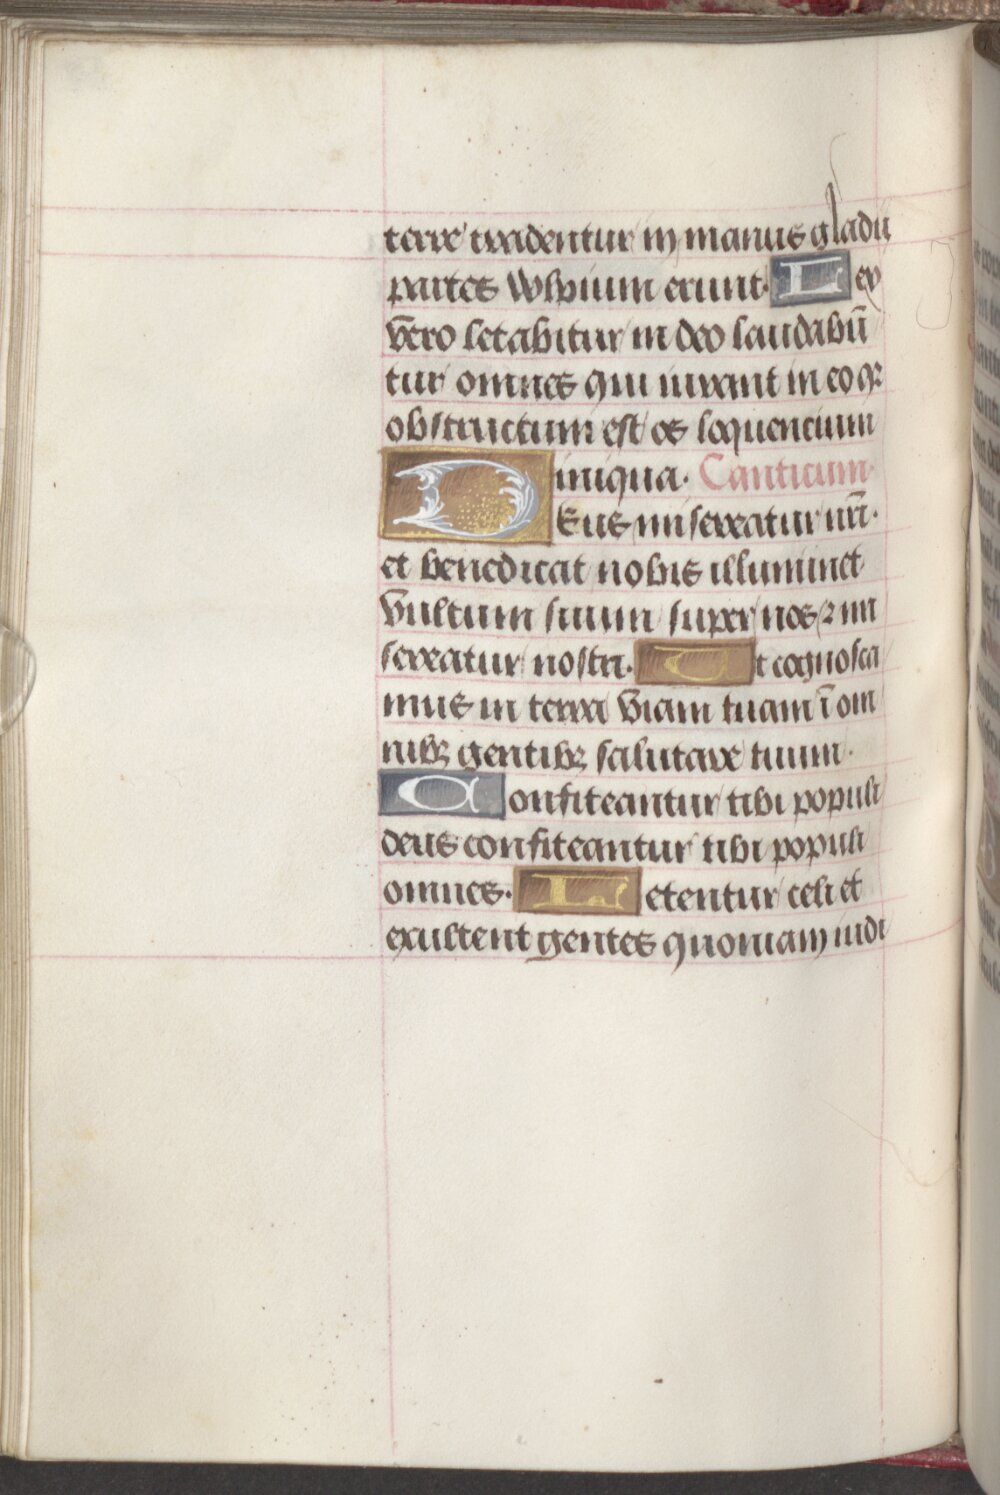 terre tradentur in manus gladii
partes vulpium erunt. Lex
vero letabitur in deo laudabū
tur omnes qui iurant in eo qꝛ
obstructum est os loquencium
iniqua. Canticum.
Deus misereatur nr̄i.
et benedicat nobis illuminet
vultum suum super nos ⁊ mi
sereatur nostri. Ut cognosca
mus in terra viam tuam ī om
nibꝫ gentibꝫ salutare tuum.
Confiteantur tibi populi
deus confiteantur tibi populi
omnes. Letentur celi et
exultent gentes quoniam iudi